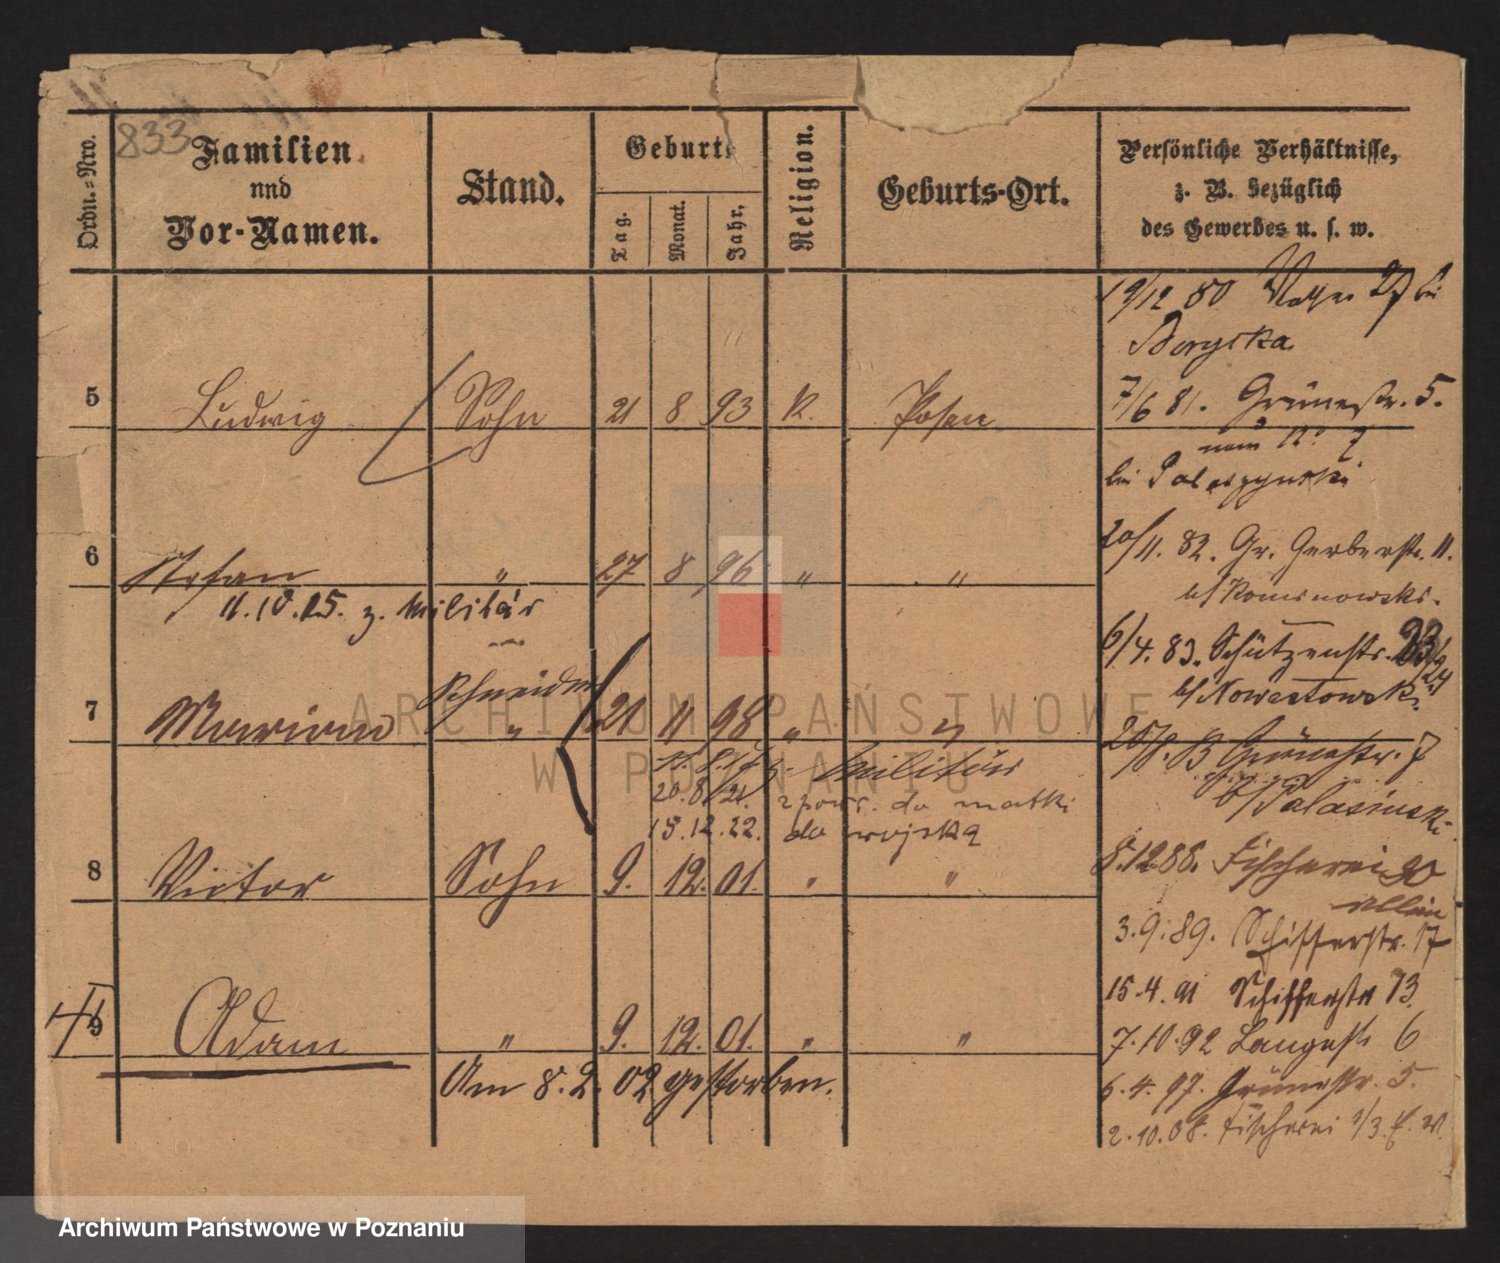 833
Ordn.=Nro.
Familien
und
Vor-Namen.
Stand.
Geburts
Tag.
Monat.
Jahr.
Religion.
Geburts-Ort.
Persönliche Verhältnisse,
z. B. bezüglich
des Gewerbes u. s. w.
5 Ludwig Sohn 21 8 93 K. Posen
6 Stefan " 27 8 96 " "
11.10.15. z. Militär
Schneider
7 Marian " 21 11 98 " "
z. Militär
20.8.21. z powr. do matki
15.12.22. do wojska
8 Victor Sohn 9. 12. 01. " "
9 Adam " 9. 12. 01. " "
Am 8.2.02 gestorben.
19/12 80
7/6 81. Grünestr. 5.
bei
20/11. 82. Gr. Gerberstr. 11.
b/
6/4. 83. Schützenstr.
b/
Grünestr. 7
b/ Palasinski
8.12 88. Fischerei 30
allein
3.9.89. Schifferstr. 17
15.4.91 Schifferstr 13.
7.10.92 Langestr 6
6.4.97. Grünestr. 5.
2.10.08. Fischerei
ARCHIWUM PAŃSTWOWE
W POZNANIU
Archiwum Państwowe w Poznaniu